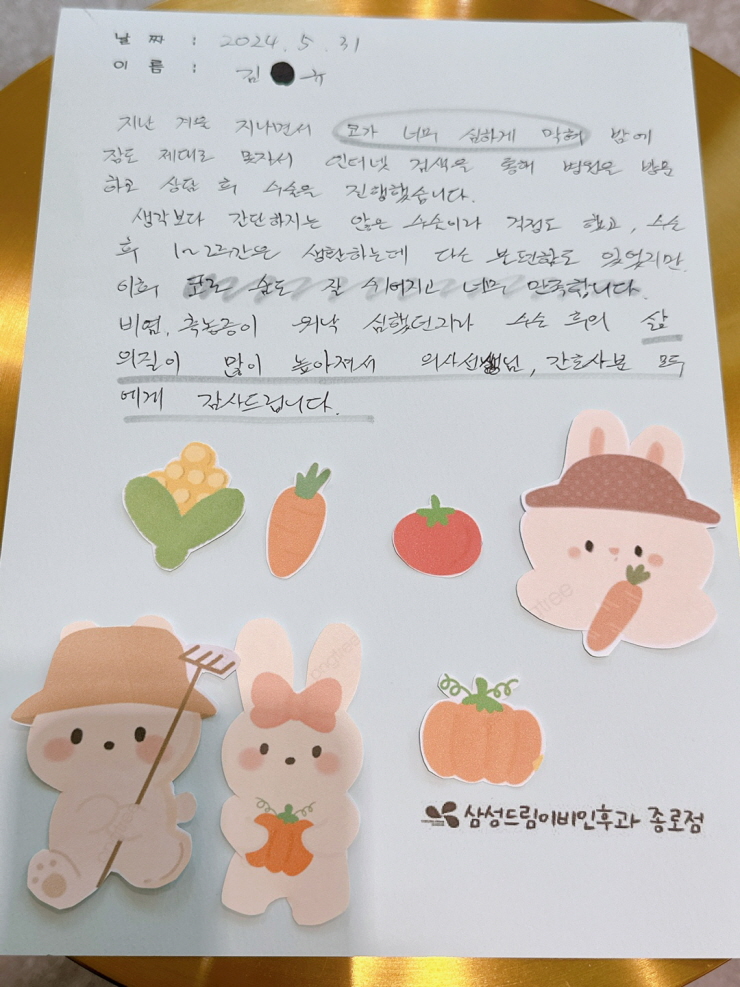 날 짜 : 2024. 5. 31
이 름 : 김 유
지난 겨울 지나면서 코가 너무 심하게 막혀 밤에
잠도 제대로 못자서 인터넷 검색을 통해 병원을 방문
하고 상담 후 수술을 진행했습니다.
생각보다 간단하지는 않은 수술이라 걱정도 했고, 수술
후 1~2주간은 생활하는데 다소 불편함도 있었지만
이후 코로 숨도 잘 쉬어지고 너무 만족합니다.
비염, 축농증이 워낙 심했던지라 수술 후의 삶
의질이 많이 높아져서 의사선생님, 간호사분 모두
에게 감사드립니다.
pngtree
pngtree
삼성드림이비인후과 종로점